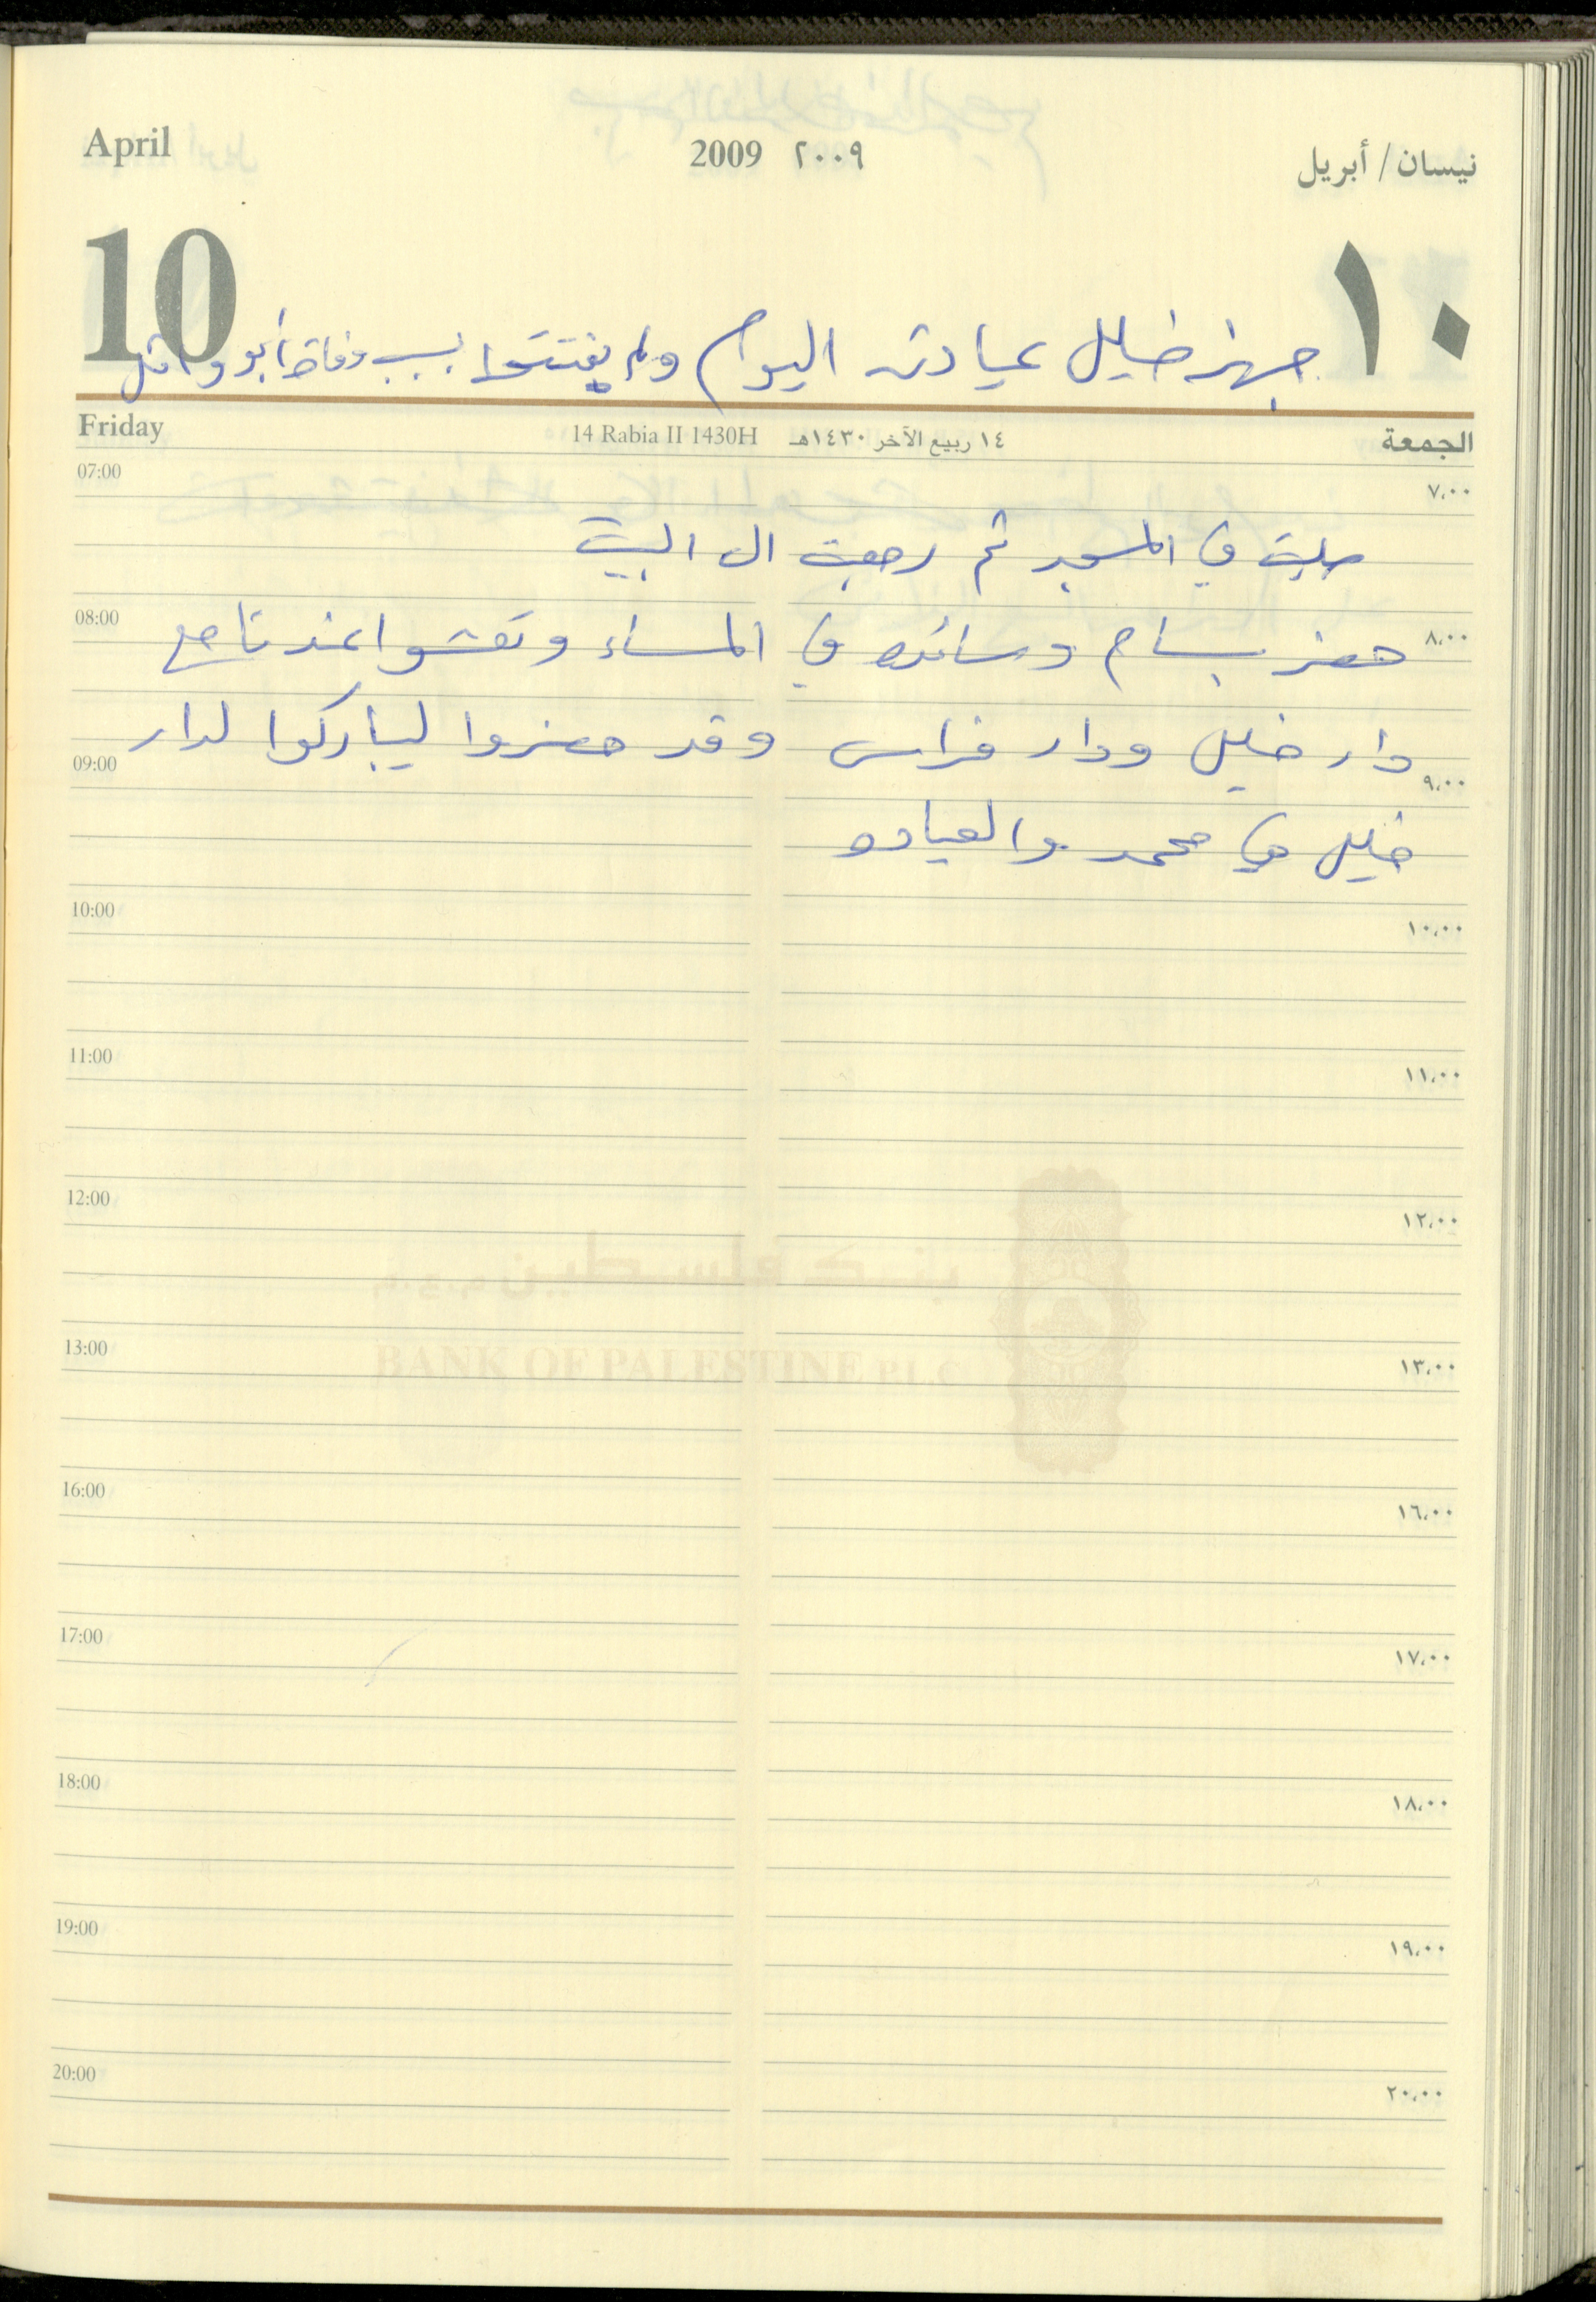 April 2009 ٢٠٠٩ نيسان / أبريل
10 ١٠
جهز خليل عيادته اليوم ولم يفتتحها بسبب وفاة أبو وائل
Friday 14 Rabia II 1430H ١٤ ربيع الآخر ١٤٣٠هـ الجمعة
07:00 ٧,٠٠
صليت في المسجد ثم رجعت الى البيت
08:00 ٨,٠٠
حضر بسام وسائده في المساء وتعشوا عندنا مع
دار خليل ودار فراس وقد حضروا ليباركوا لدار
09:00 ٩,٠٠
خليل في محمد والعياده
10:00 ١٠,٠٠
11:00 ١١,٠٠
12:00 ١٢,٠٠
13:00 ١٣,٠٠
بنك فلسطين
BANK OF PALESTINE P.L.C
16:00 ١٦,٠٠
17:00 ١٧,٠٠
18:00 ١٨,٠٠
19:00 ١٩,٠٠
20:00 ٢٠,٠٠